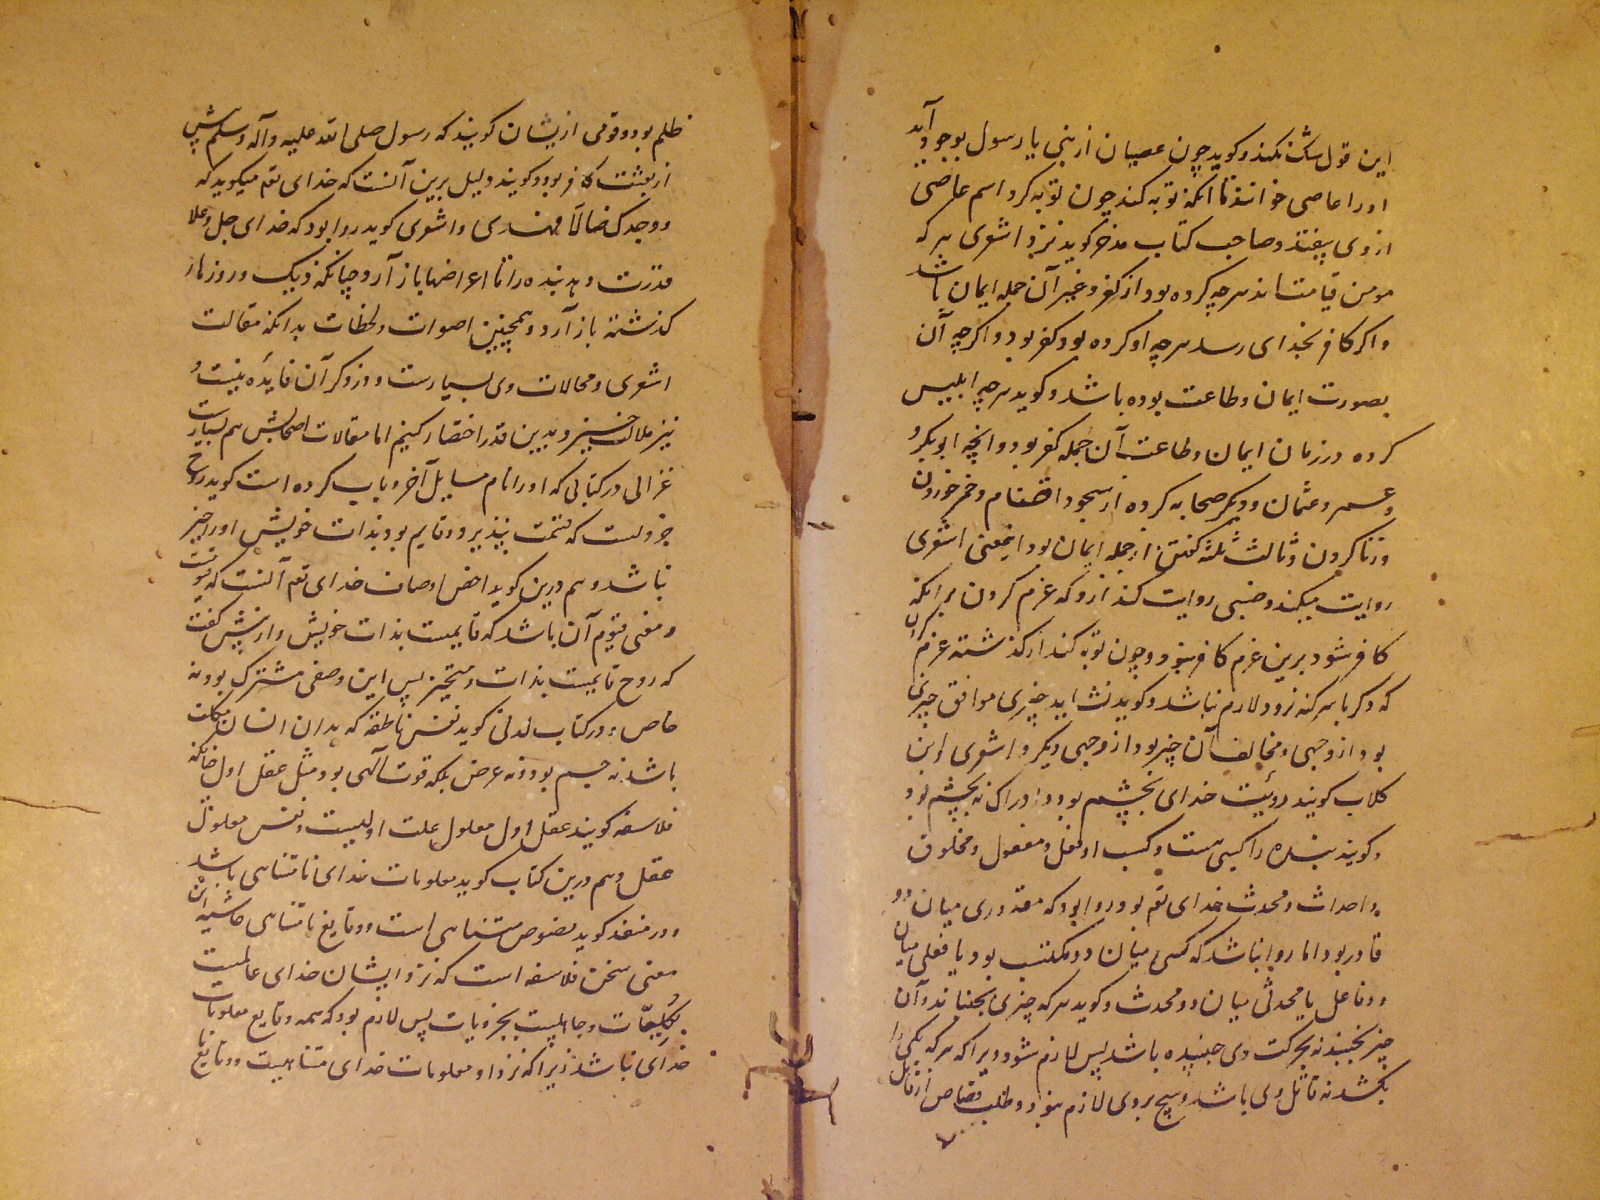 این قول شک نکند و کوید چون عصیان از بنی یا رسول بوجود آید
او را عاصی خوانند تا انکه توبه کند چون توبه کرد اسم عاصی
از وی بیفتد و صاحب کتاب مذخر کوید نزد اشعری هر که
مومن قیامت اند هر چه کرده بود از کفر و غیر آن جمله ایمان باشد
و اکر کافر بخدای رسد هر چه او کرده بود کفر بود و اکر چه آن
بصورت ایمان و طاعت بوده باشد و کوید هر چه ابلیس
کرده در زمان ایمان و طاعت آن جمله کفر بود و انچه ابوبکر و
و عمر و عثمان و دیکر صحابه کرده از سجود اصنام و خمر خوردن
و زنا کردن و ثالث ثلثه کفتن از جمله ایمان بود اینمعنی اشعری
روایت میکند و ضبی روایت کند ازو که عزم کردن بر انکه
کافر شود برین عزم کافر شود و چون توبه کند از کذشته عزم آن
که دکر با سر کنه نرود لازم نباشد و کوید نشاید چیزی موافق چیزی
بود از وجهی و مخالف آن چیز بود از وجهی دیکر و اشعری و ابن
کلاب کویند رویت خدای بچشم بود و ادراک نه بچشم بود
و کویند بنده را کسبی هست و کسب او فعل و مفعول و مخلوق
و احداث و محدث خدای تعم بود و روا بود که مقدوری میان دو
قادر بود اما روا نباشد که کسبی میان دو مکتسب بود یا فعلی میان
دو فاعل یا محدثی میان دو محدث و کوید هر که چیزی بجنباند و آن
چیز بجنبد نه بحرکت وی جنبیده باشد پس لازم شود ویرا که هر که یکی را
بکشد نه قاتل وی باشد و هیچ بر وی لازم نبود و طلب قصاص از قاتل
ظلم بود و قومی ازیشان کویند که رسول صلی الله علیه و آله و سلم پیش
از بعثت کافر بود و کویند دلیل برین آنست که خدای تعم میکوید که
و وجدک ضالا فهدی و اشعری کوید روا بود که خدای جل و علا
قدرت دهد بنده را تا اعراضها باز آرد چنانکه دیک و روزها
کذشته باز آرد و همچنین اصوات و لحظات بدانکه مقالت
اشعری و محالات وی بسیارست و در ذکر آن فایده نیست و
نیز ملالت خیزد بدین قدر اختصار کنیم اما مقالات اصحابش هم بسیارست
غزالی در کتابی که او را نام مسایل آخر و باب کرده است کوید روح
جزویست که قسمت نپذیرد و قایم بود بذات خویش او را حیز
نباشد و هم درین کوید اخص اوصاف خدای تعم آنست که قیومست
و معنی قیوم آن باشد که قایمست بذات خویش و از پیش کفت
که روح قایمست بذات و متحیز پس این وصفی مشترک بود نه
خاص و در کتاب لدنی کوید نفس ناطقه که بدان انسان مکلف
باشد نه جسم بود و نه عرض بلکه قوت آلهی بود مثل عقل اول چنانکه
فلاسفه کویند عقل اول معلول علت اولیست و نفس معلول
عقل و هم درین کتاب کوید معلومات خدای نامتناهی باشد
و در منقذ کوید نصوص متناهی است و وقایع نامتناهی حاشیه این
معنی سخن فلاسفه است که نزد ایشان خدای عالمست
بکلیات و جاهلست بجزویات پس لازم بود که همه وقایع معلومات
خدای نباشد زیرا که نزد او معلومات خدای متناهیست و وقایع نا